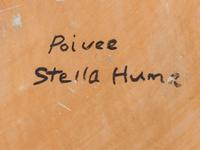 Poivee
Stella Hume